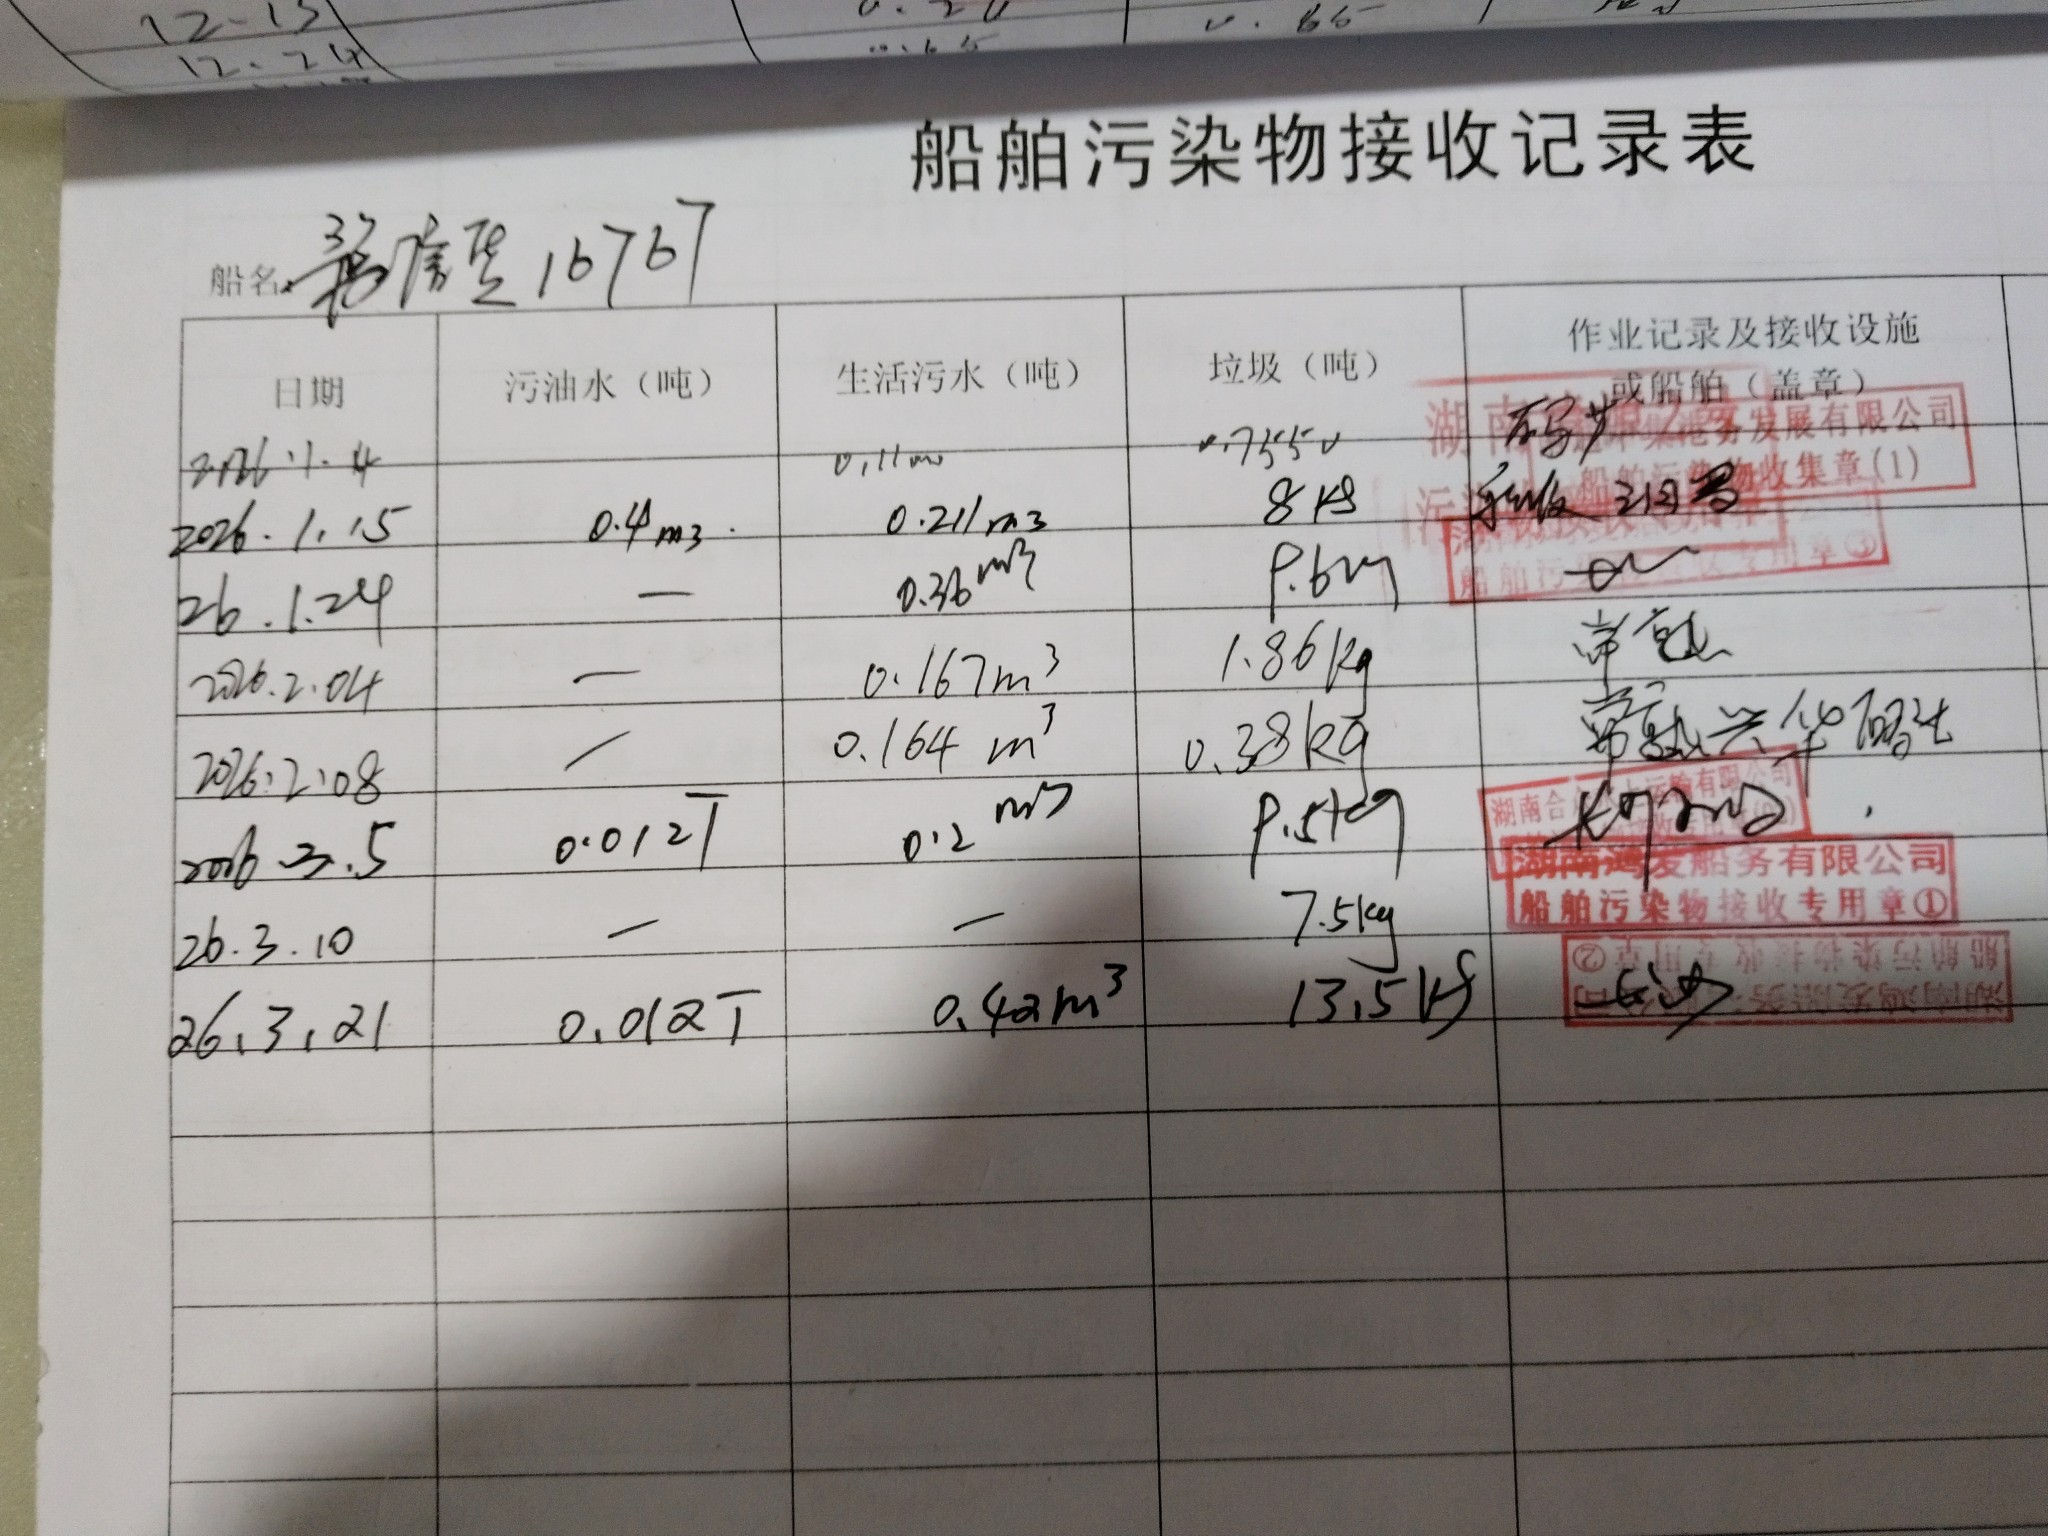 12-13
12-24
船舶污染物接收记录表
船名 16767
日期 污油水（吨） 生活污水（吨） 垃圾（吨） 作业记录及接收设施
或船舶（盖章）
2026.1.4 0.11m
发展有限公司
船舶污染物收集章(1)
2026.1.15 0.4m3 0.211m3 8kg
船舶污 专用章③
26.1.24 — 0.36m³ 9.6kg
2026.2.04 — 0.167m³ 1.86kg 常熟
2026.2.08 / 0.164m³ 0.38kg 常熟兴华码头
湖南合 运输有限公司
2026.3.5 0.012T 0.2m³ 9.5kg
湖南鸿发船务有限公司
船舶污染物接收专用章①
26.3.10 — — 7.5kg
船舶污染物接收专用章②
湖南鸿发船务 公司
26.3.21 0.012T 0.42m³ 13.5kg 长沙